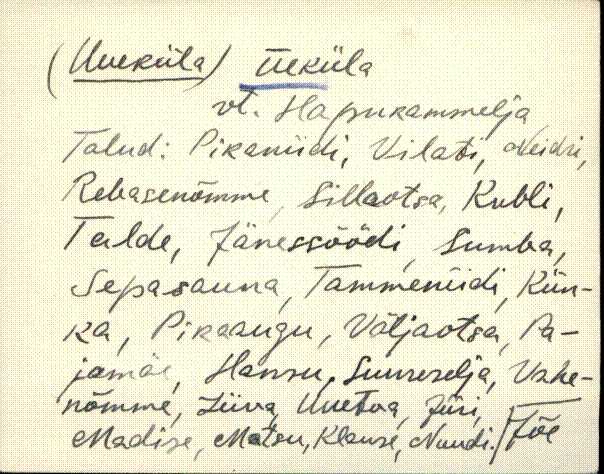 (Uueküla) Üeküla
vt. Hapukammelja
Talud: Pikaniidi, Vilati, Neidri,
Rebasenõmme, Sillaotsa, Kubli,
Telde, Jänessöödi, Sumba,
Sepasauna, Tammeniidi, Kün-
ka, Pikaaugu, Väljaotsa, Pa-
jamäe, Hansu, Suureselja, Vahe-
nõmme, Liiva, Uuetoa, Jüri,
Madise, Matsu, Klause, Nuudi. / Jõe